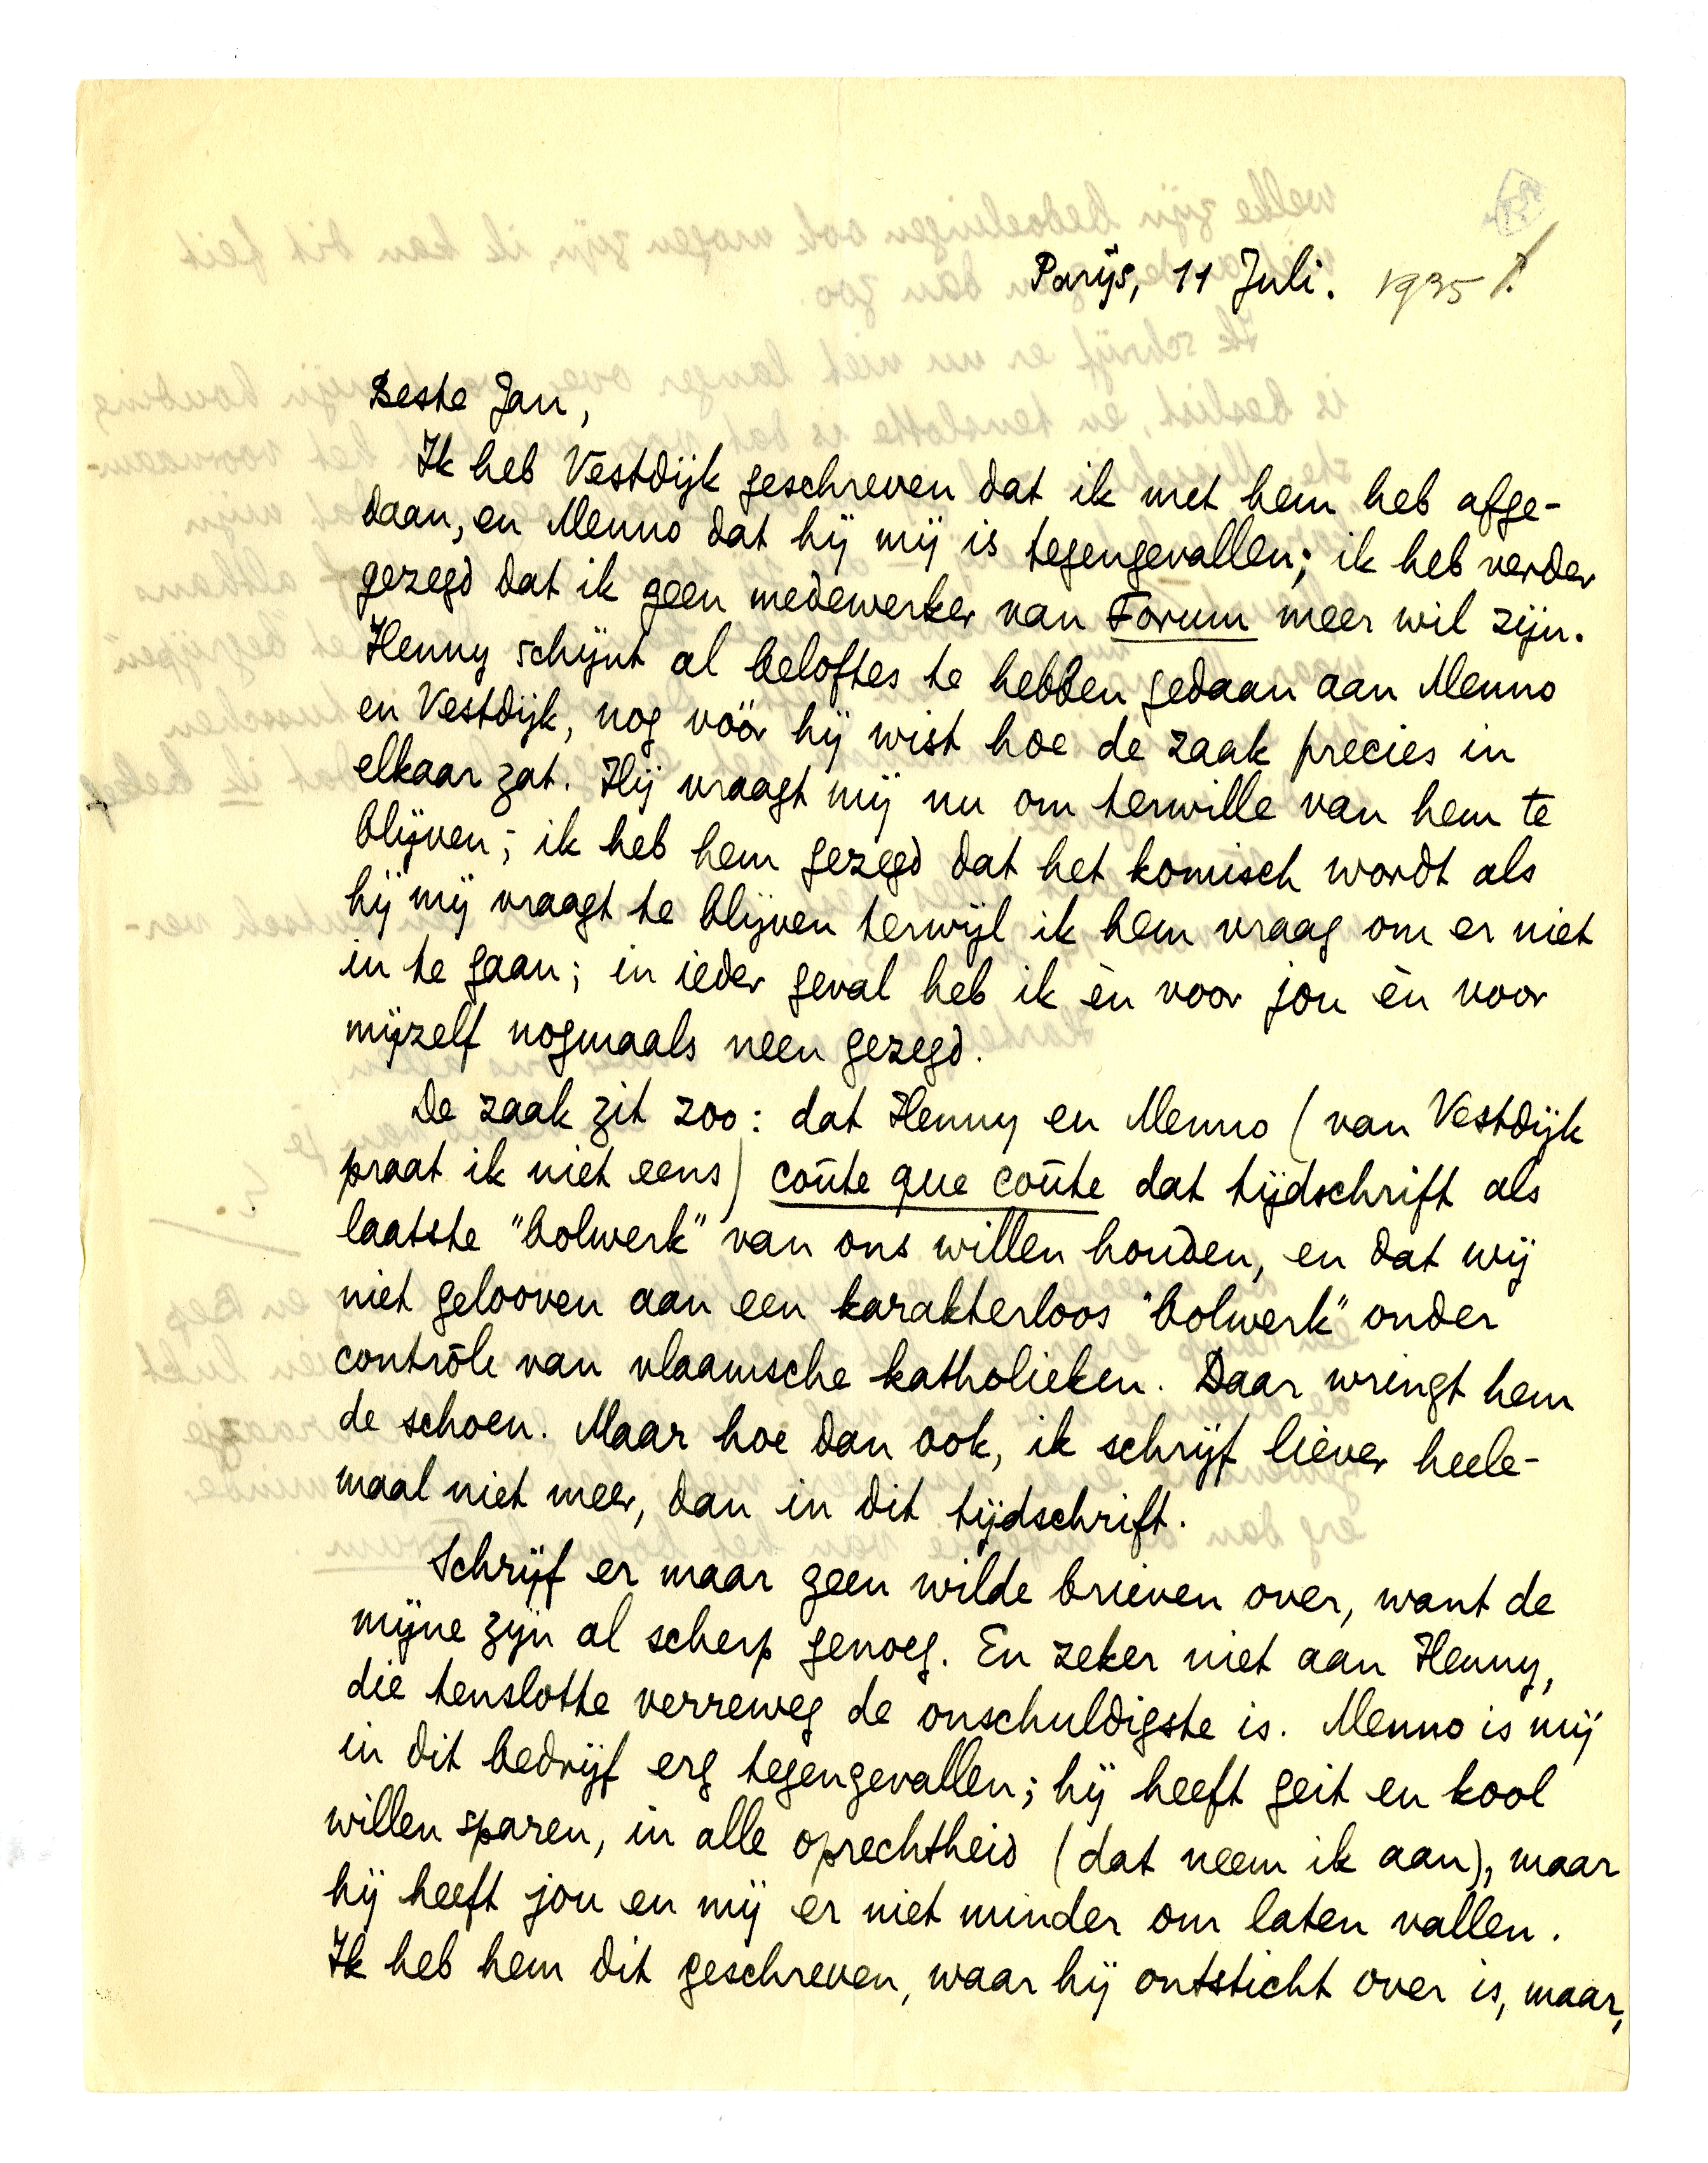 Parijs, 11 Juli. 1935
Beste Jan,
Ik heb Vestdijk geschreven dat ik met hem heb afge-
daan, en Menno dat hij mij is tegengevallen; ik heb verder
gezegd dat ik geen medewerker van Forum meer wil zijn.
Henny schijnt al beloftes te hebben gedaan aan Menno
en Vestdijk, nog vóór hij wist hoe de zaak precies in
elkaar zat. Hij vraagt mij nu om terwille van hem te
blijven; ik heb hem gezegd dat het komisch wordt als
hij mij vraagt te blijven terwijl ik hem vraag om er niet
in te gaan; in ieder geval heb ik èn voor jou èn voor
mijzelf nogmaals neen gezegd.
De zaak zit zoo: dat Henny en Menno (van Vestdijk
praat ik niet eens) coûte que coûte dat tijdschrift als
laatste "bolwerk" van ons willen houden, en dat wij
niet gelooven aan een karakterloos "bolwerk" onder
contrôle van vlaamsche katholieken. Daar wringt hem
de schoen. Maar hoe dan ook, ik schrijf liever heele-
maal niet meer, dan in dit tijdschrift.
Schrijf er maar geen wilde brieven over, want de
mijne zijn al scherp genoeg. En zeker niet aan Henny,
die tenslotte verreweg de onschuldigste is. Menno is mij
in dit bedrijf erg tegengevallen; hij heeft geit en kool
willen sparen, in alle oprechtheid (dat neem ik aan), maar
hij heeft jou en mij er niet minder om laten vallen.
Ik heb hem dit geschreven, waar hij ontsticht over is, maar,